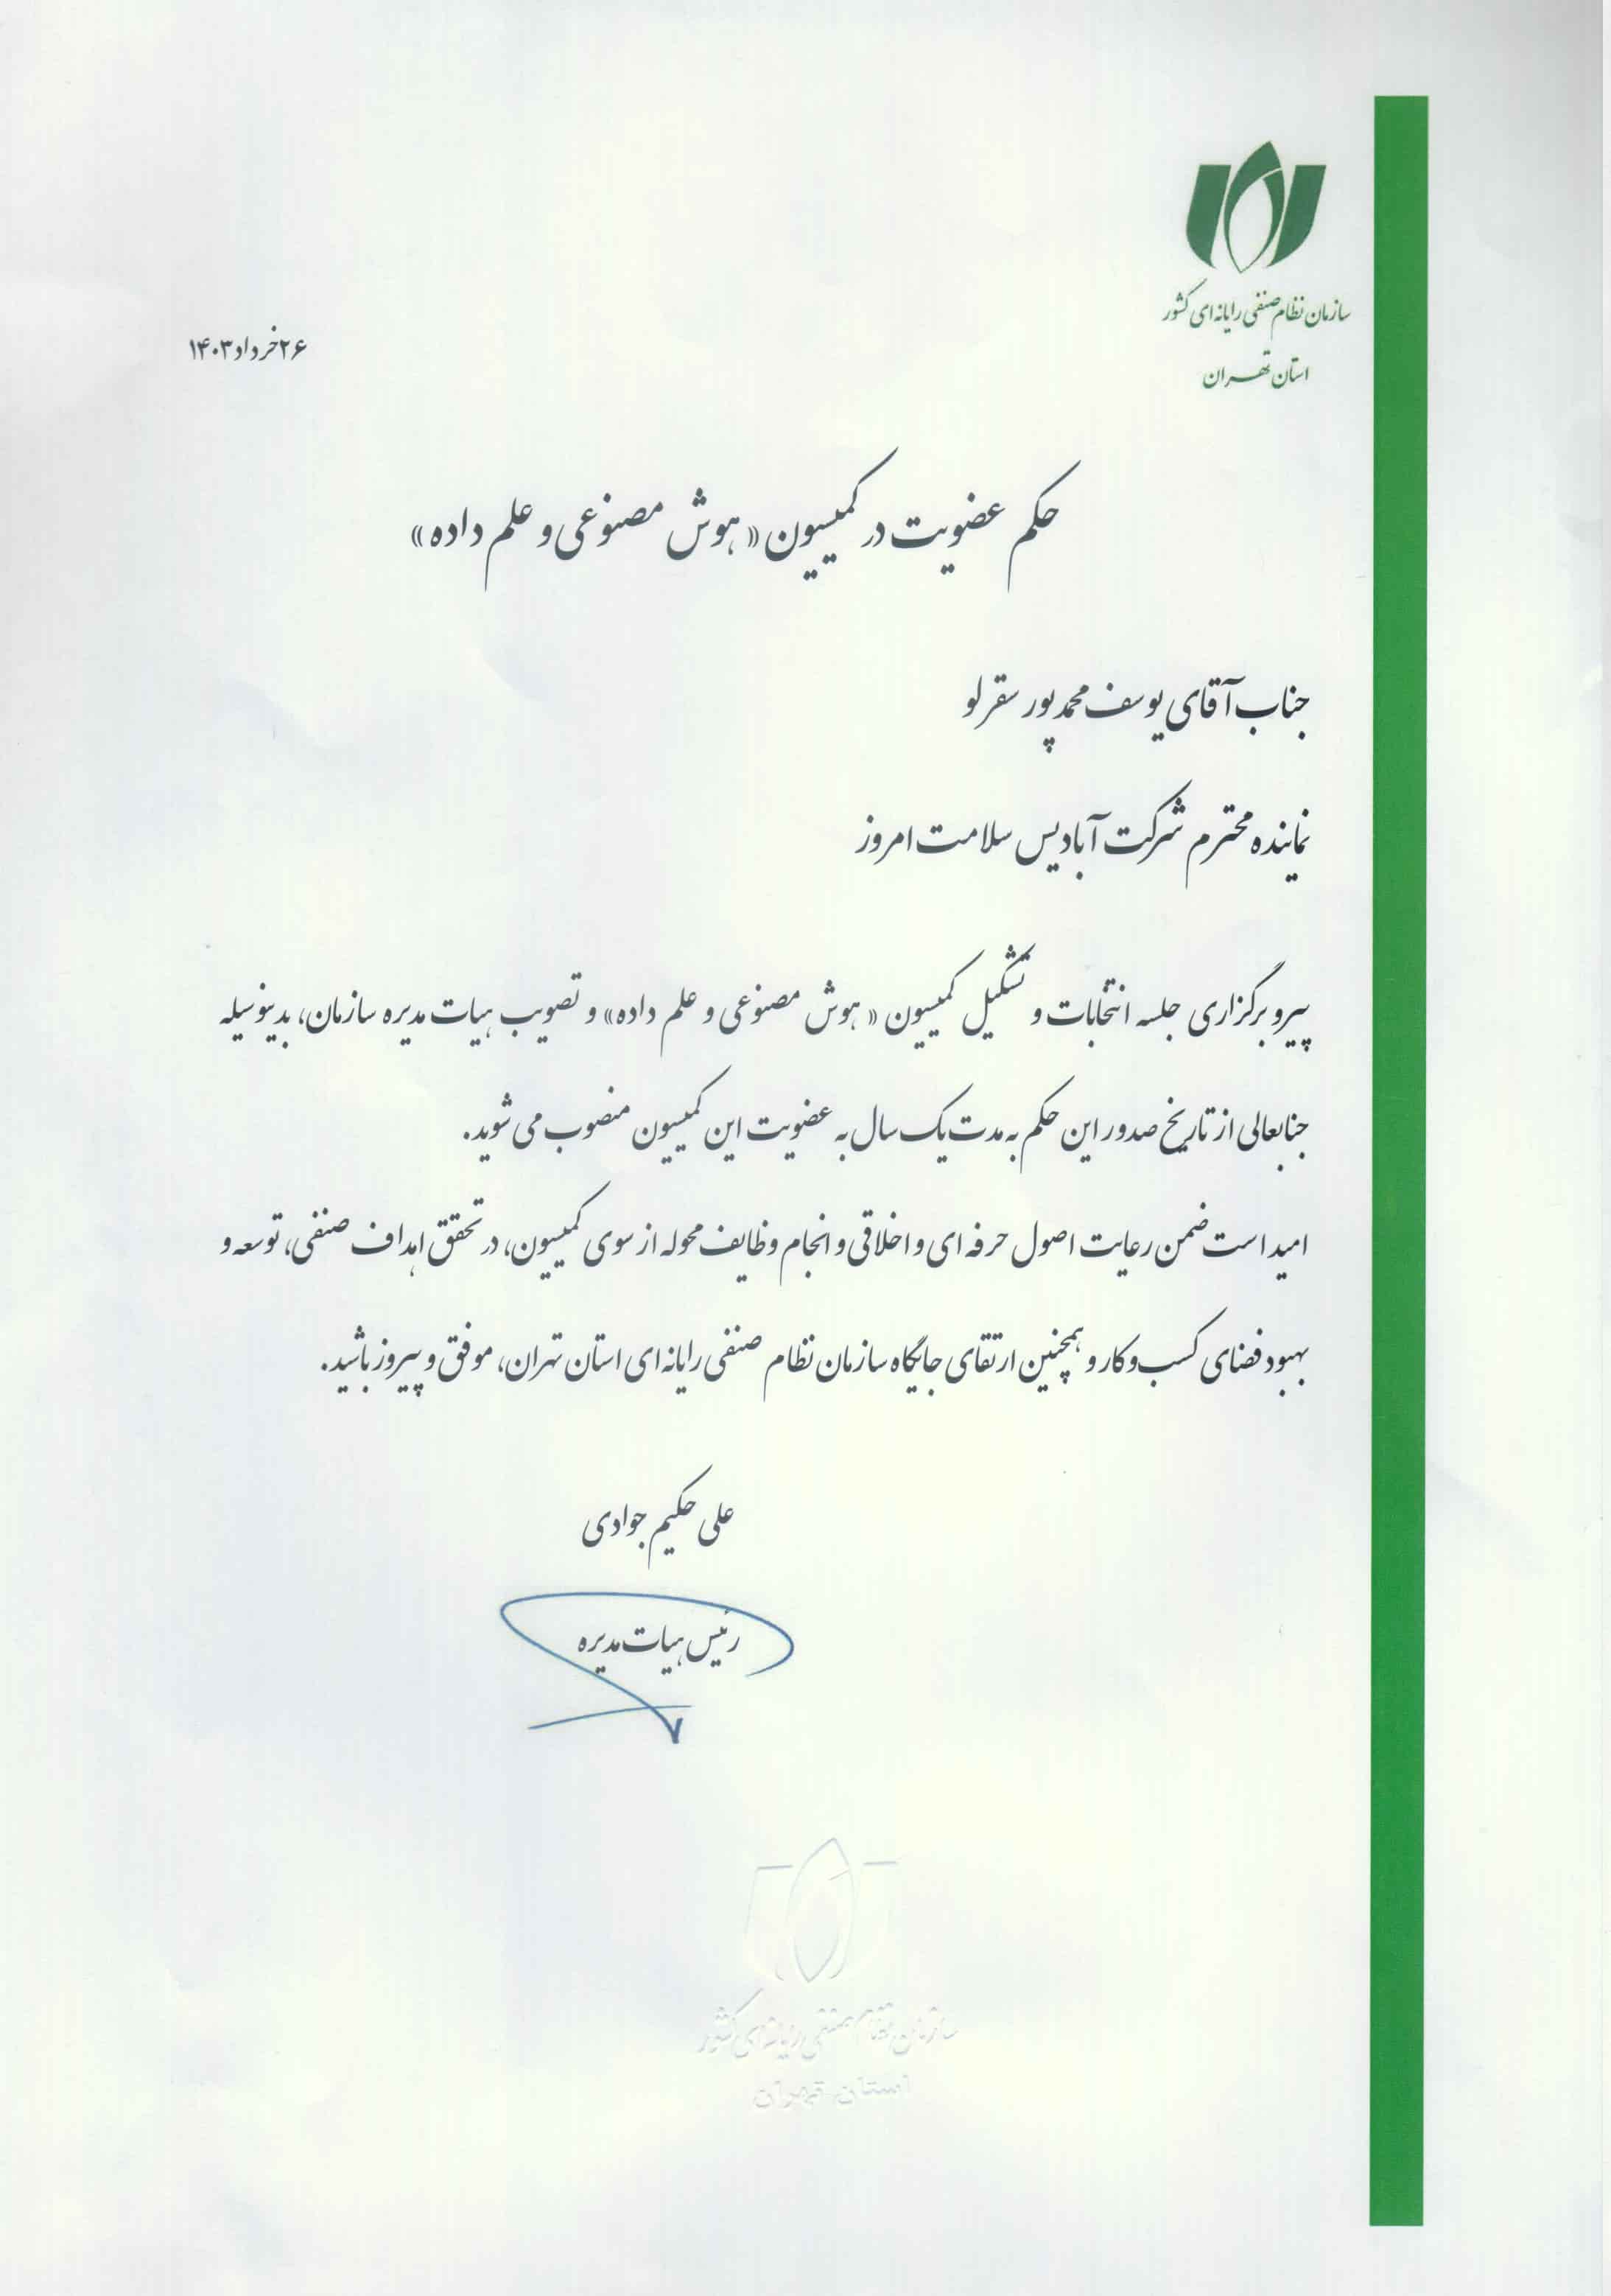 سازمان نظام صنفی رایانه‌ای کشور
استان تهران
۲۶ خرداد ۱۴۰۳
حکم عضویت در کمیسیون «هوش مصنوعی و علم داده»
جناب آقای یوسف محمدپور سقرلو
نماینده محترم شرکت آبادیس سلامت امروز
پیرو برگزاری جلسه انتخابات و تشکیل کمیسیون «هوش مصنوعی و علم داده» و تصویب هیات مدیره سازمان، بدینوسیله
جنابعالی از تاریخ صدور این حکم به مدت یک سال به عضویت این کمیسیون منصوب می شوید.
امید است ضمن رعایت اصول حرفه ای و اخلاقی و انجام وظایف محوله از سوی کمیسیون، در تحقق اهداف صنفی، توسعه و
بهبود فضای کسب و کار و همچنین ارتقای جایگاه سازمان نظام صنفی رایانه ای استان تهران، موفق و پیروز باشید.
علی حکیم جوادی
رئیس هیات مدیره
سازمان نظام صنفی رایانه‌ای کشور
استان تهران